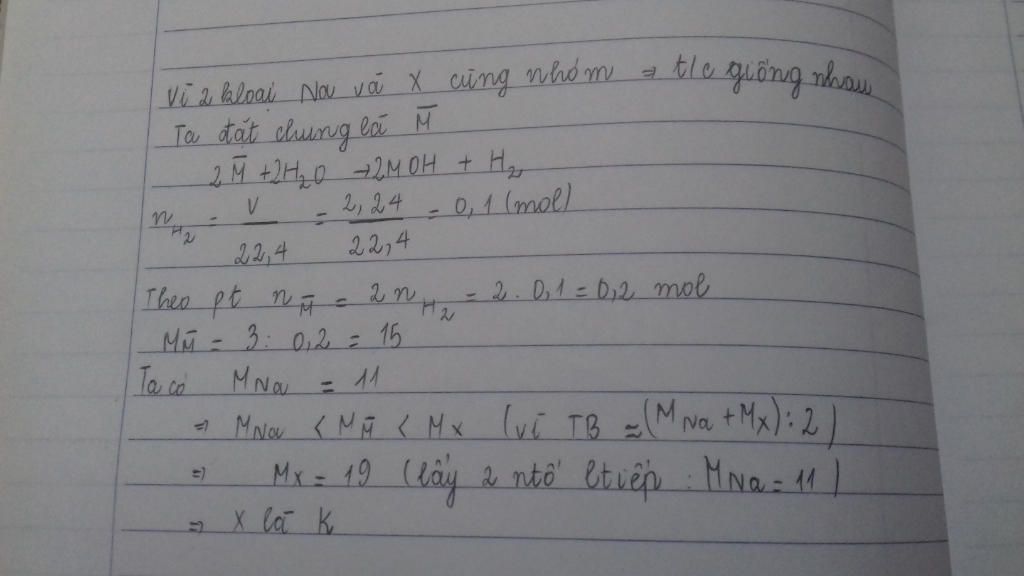 Vì 2 kloại Na và X cùng nhóm ⇒ t/c giống nhau
Ta đặt chung là M̄
2M̄ + 2H₂O → 2MOH + H₂
n_H₂ = V/22,4 = 2,24/22,4 = 0,1 (mol)
Theo pt n_M̄ = 2n_H₂ = 2. 0,1 = 0,2 mol
M_M̄ = 3 : 0,2 = 15
Ta có M_Na = 11
⇒ M_Na < M_M̄ < M_X (vì TB ≈ (M_Na + M_X) : 2)
⇒ M_X = 19 (lấy 2 ntố ltiếp : M_Na = 11)
⇒ X là K